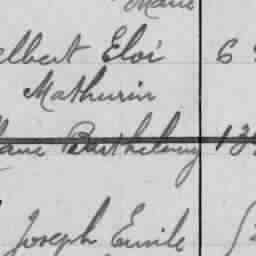 Marie
elbert Eloi 6
Mathurin
Barthelemy 13
Joseph Emile